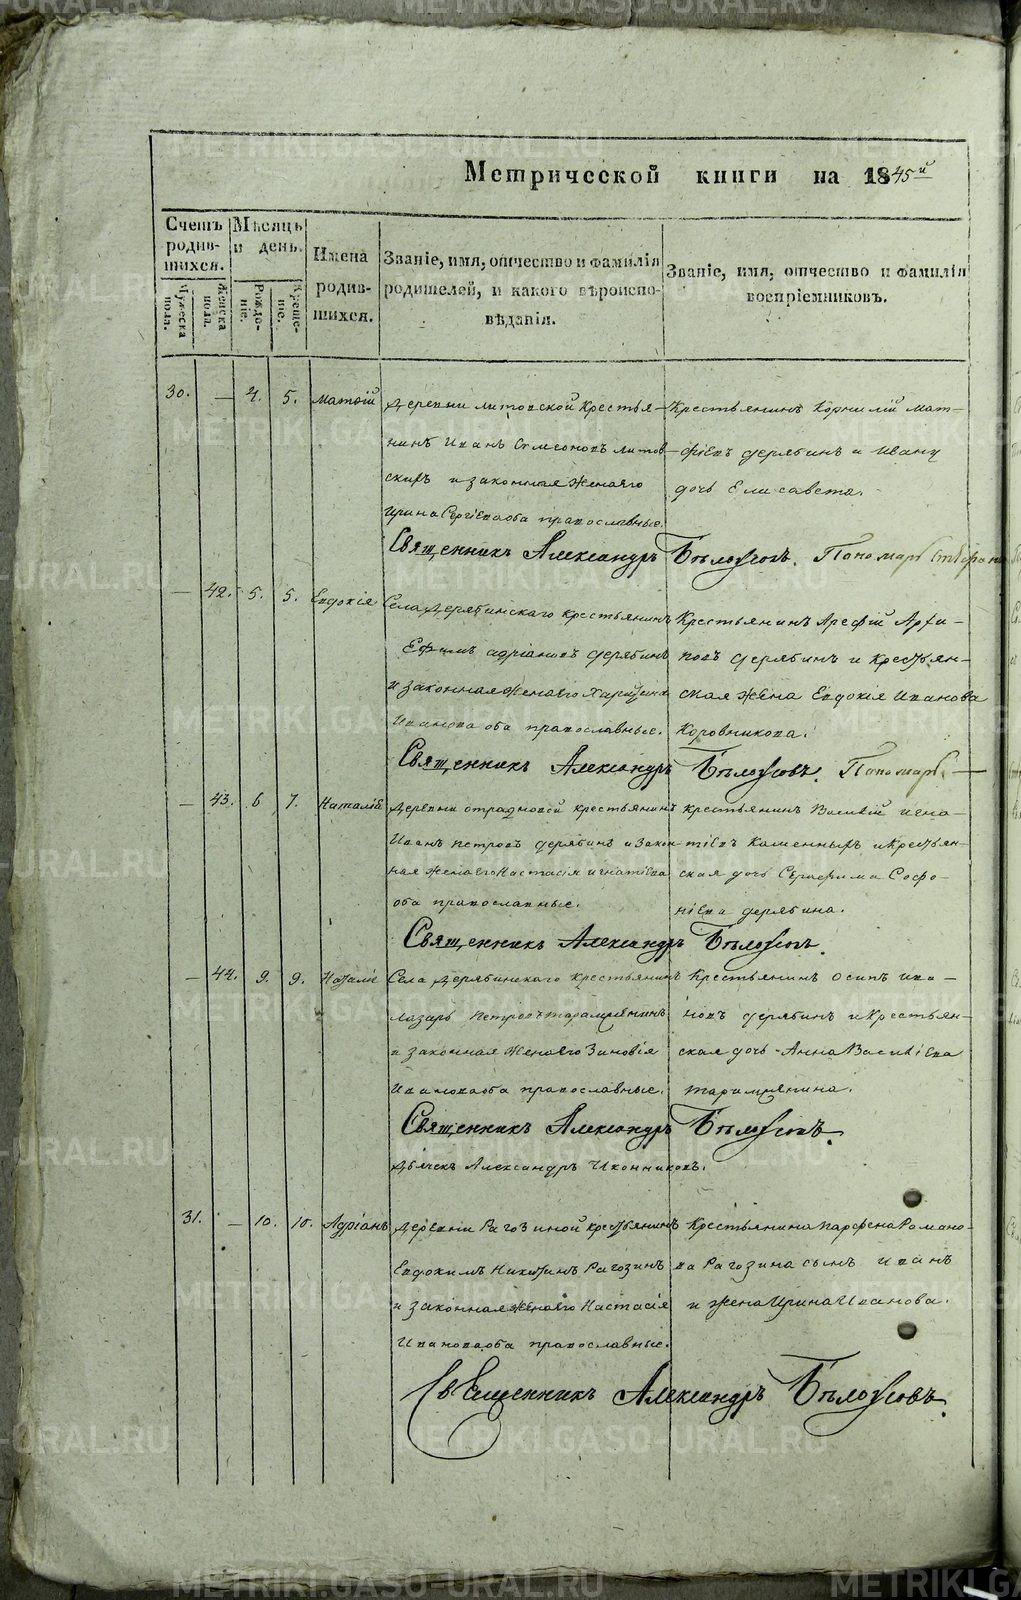 METRIKI.GASO-URAL.RU
Метрической книги на 1845й
Счетъ родившихся.
Мѣсяцъ и день.
Имена родившихся.
Званіе, имя, отчество и фамилія родителей, и какого вѣроисповѣданія.
Званіе, имя, отчество и фамилія воспріемниковъ.
Мужеска пола.
Женска пола.
Рожденіе.
Крещеніе.
30. — 4. 5. Матѳій
Деревни Литовской Крестья-
нинъ Иванъ Симеоновъ Литов
скихъ и законная жена его
Ирина Сергіева оба православные.
Крестьянинъ Корнилій Мат-
фіевъ Дерябинъ и Ивану
дочь Елисавета.
Священникъ Александръ Бѣлоусовъ. Пономарь Стефанъ
— 42. 5. 5. Евдокія
Села Дерябинскаго крестьянинъ
Ефимъ Адріановъ Дерябинъ
и законная жена его Харитина
Иванова оба православные.
Крестьянинъ Арефій Архи-
повъ Дерябинъ и крестьян-
ская жена Евдокія Иванова
Коровникова.
Священникъ Александръ Бѣлоусовъ. Пономарь —
— 43. 6 7. Наталія
Деревни Отрадновой крестьянинъ
Иванъ Петровъ Дерябинъ и закон-
ная жена его Настасія Игнатіева
оба православные.
Крестьянинъ Василій Игна-
тіевъ Каменныхъ и крестьян-
ская дочь Серафима Софо-
ніева Дерябина.
Священникъ Александръ Бѣлоусовъ.
— 44. 9. 9. Наталія
Села Дерябинскаго крестьянинъ
Лазарь Петровъ
и законная жена его Зиновія
Иванова оба православные.
Крестьянинъ Осипъ Ива-
новъ Дерябинъ и крестьян-
ская дочь Анна Василіева
Священникъ Александръ Бѣлоусовъ.
Дьячекъ Александръ Иконниковъ.
31. — 10. 10. Адріанъ
Деревни Рагозиной крестьянинъ
Евдокимъ Никитинъ Рагозинъ
и законная жена его Настасія
Иванова оба православные.
Крестьянина Парфена Романо-
ва Рагозина сынъ Иванъ
и жена Ирина Иванова.
Священникъ Александръ Бѣлоусовъ.